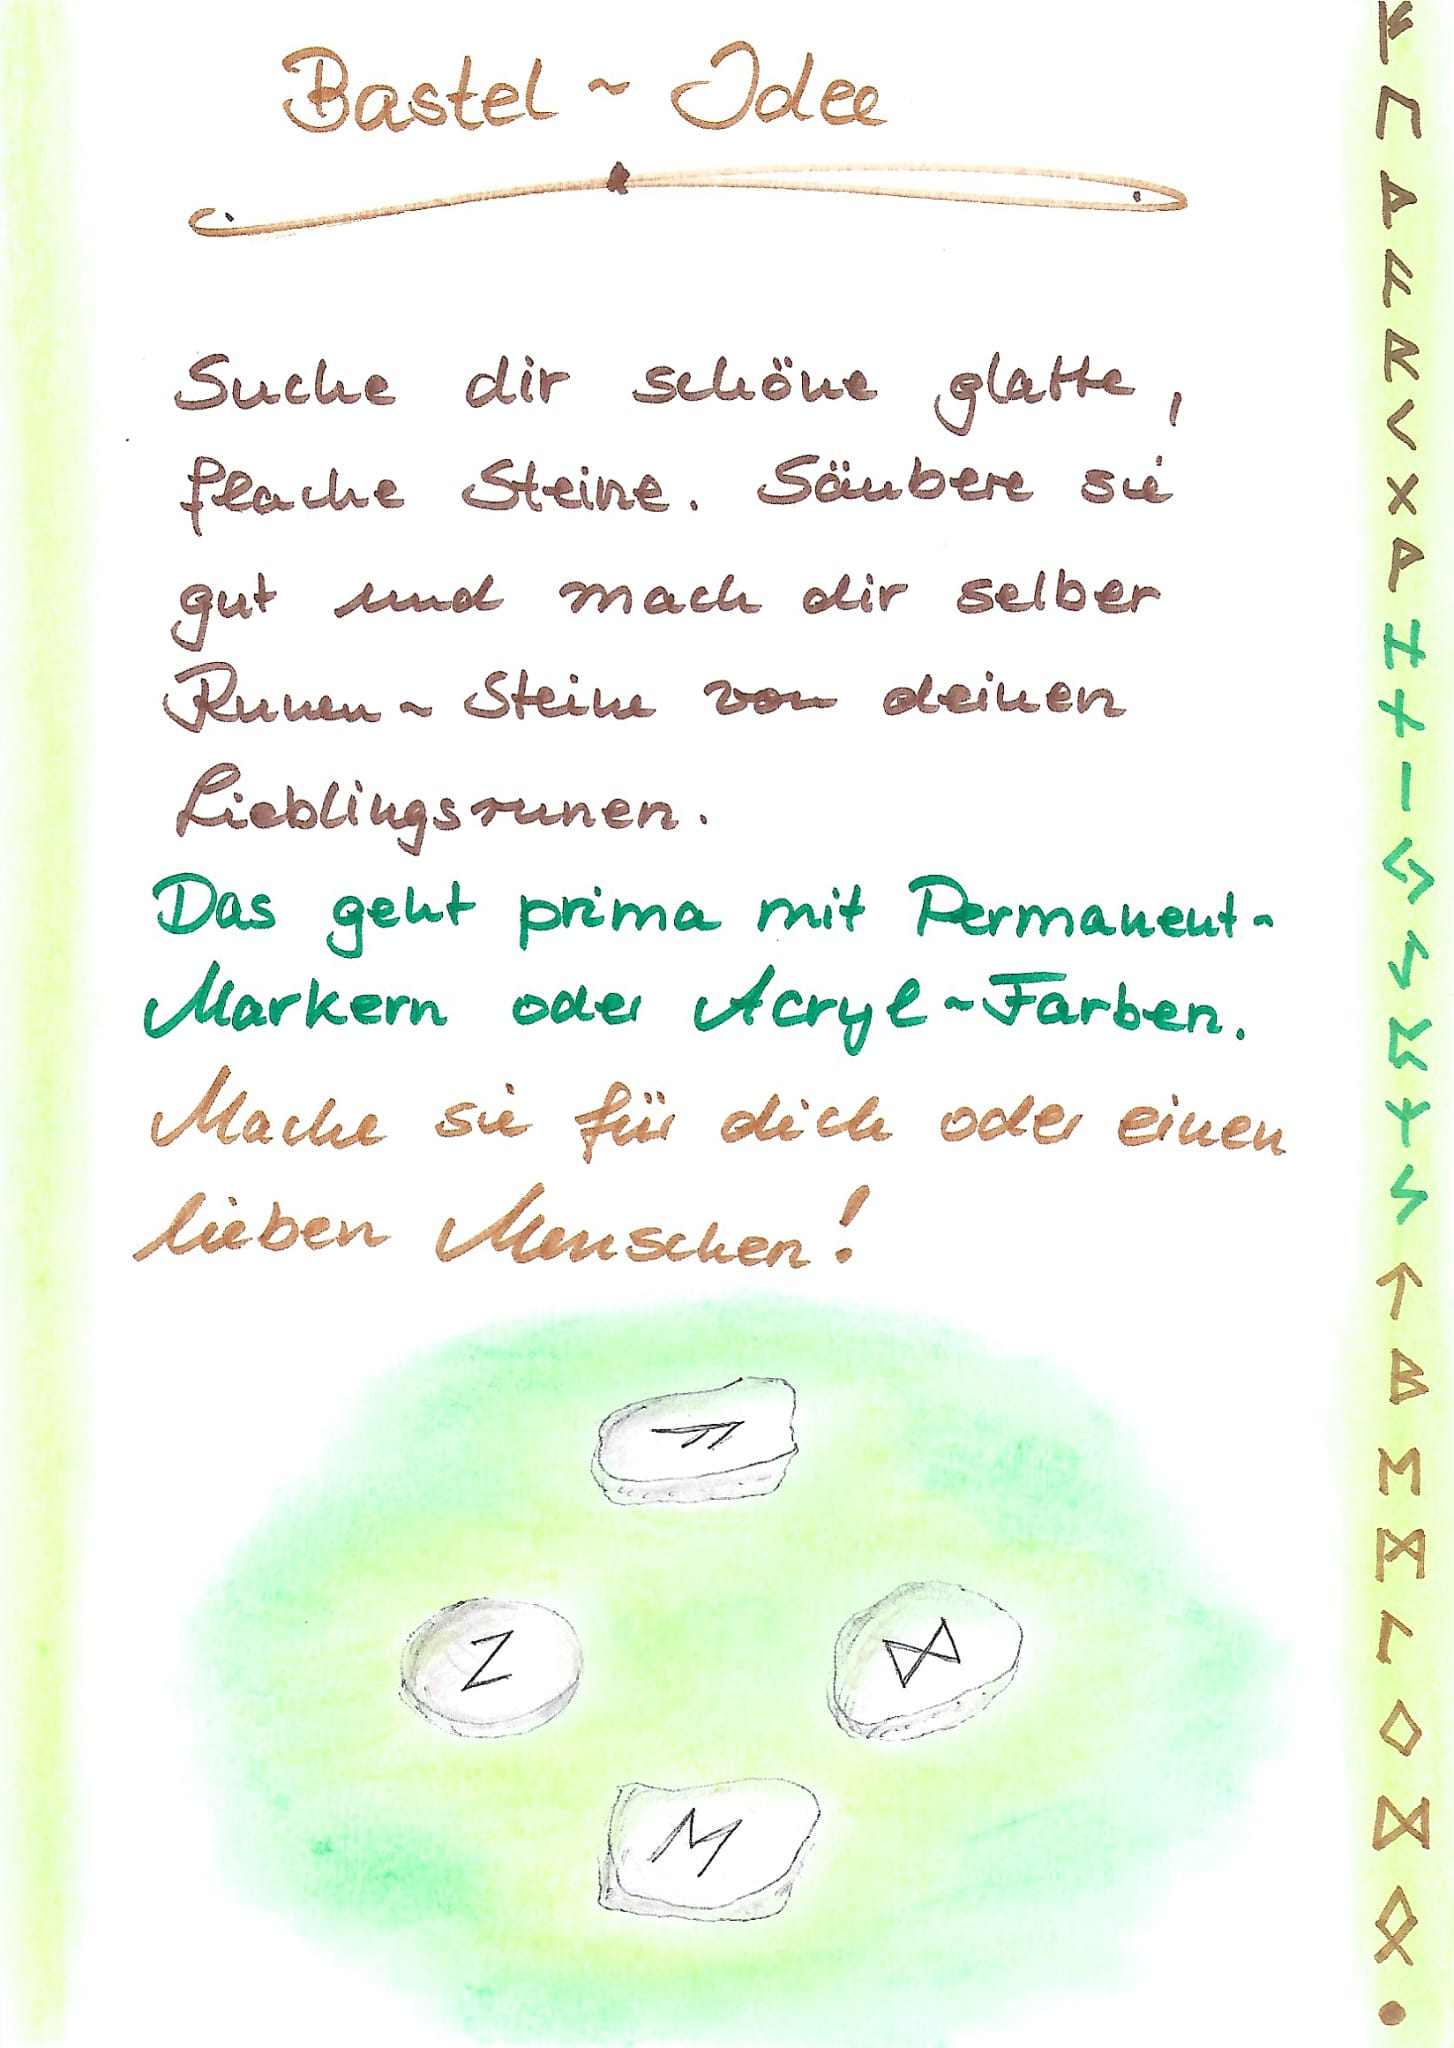 Bastel ~ Idee
Suche dir schöne glatte,
flache Steine. Säubere sie
gut und mach dir selber
Runen ~ Steine von deinen
Lieblingsrunen.
Das geht prima mit Permanent-
Markern oder Acryl ~ Farben.
Mache sie für dich oder einen
lieben Menschen!
ᚠ
ᚢ
ᚦ
ᚨ
ᚱ
ᚲ
ᚷ
ᚹ
ᚺ
ᚾ
ᛁ
ᛃ
ᛇ
ᛈ
ᛉ
ᛊ
ᛏ
ᛒ
ᛖ
ᛗ
ᛚ
ᛜ
ᛞ
ᛟ